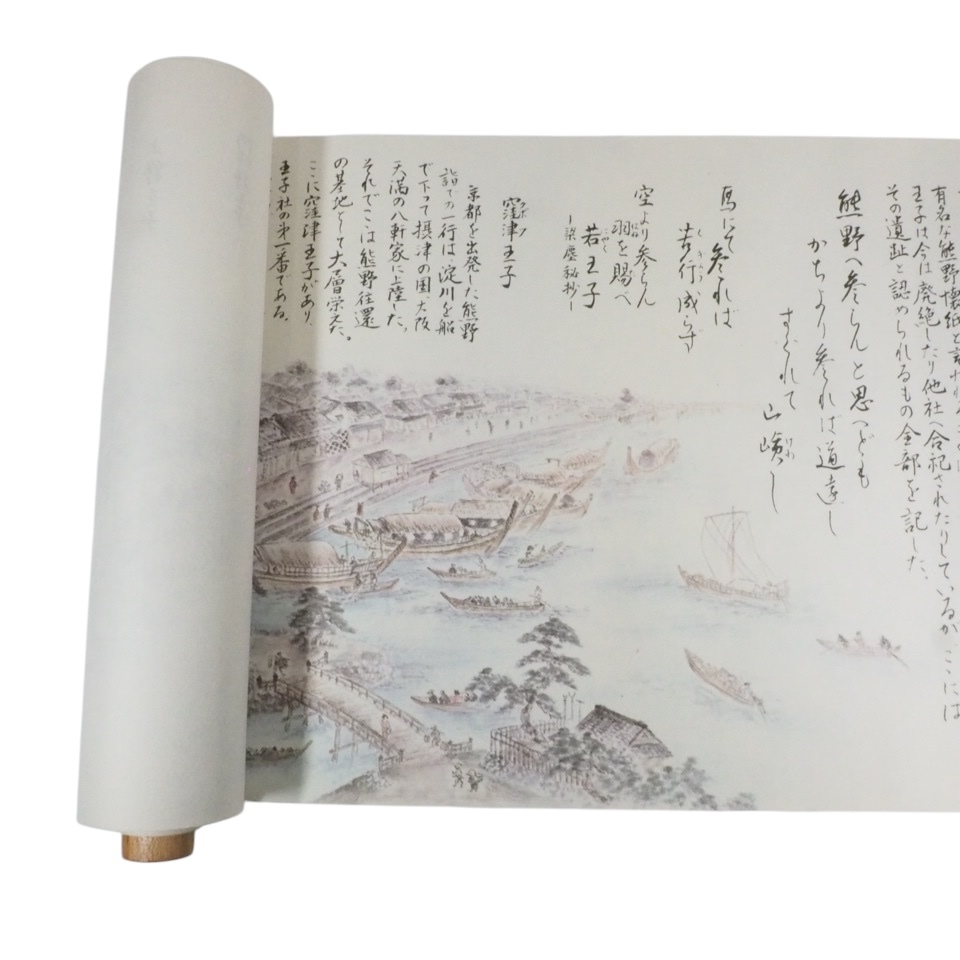 有名な熊野懐紙と
王子は今は廃絶したり他社へ合祀されたりしているが ここには
その遺趾と認められるもの全部を記した。
熊野へ参らんと思へども
かちより参れば道遠し
すぐれて山嶮し
馬にて参れば
苦行成らず
空より参らん
羽を賜べ
若王子
―梁塵秘抄―
クボツ
窪津王子
京都を出発した熊野
詣での一行は、淀川を船
で下って摂津の国、大阪
天満の八軒家に上陸した。
それでここは熊野往還
の基地として大層栄えた。
ここに窪津王子があり、
王子社の第一番である。